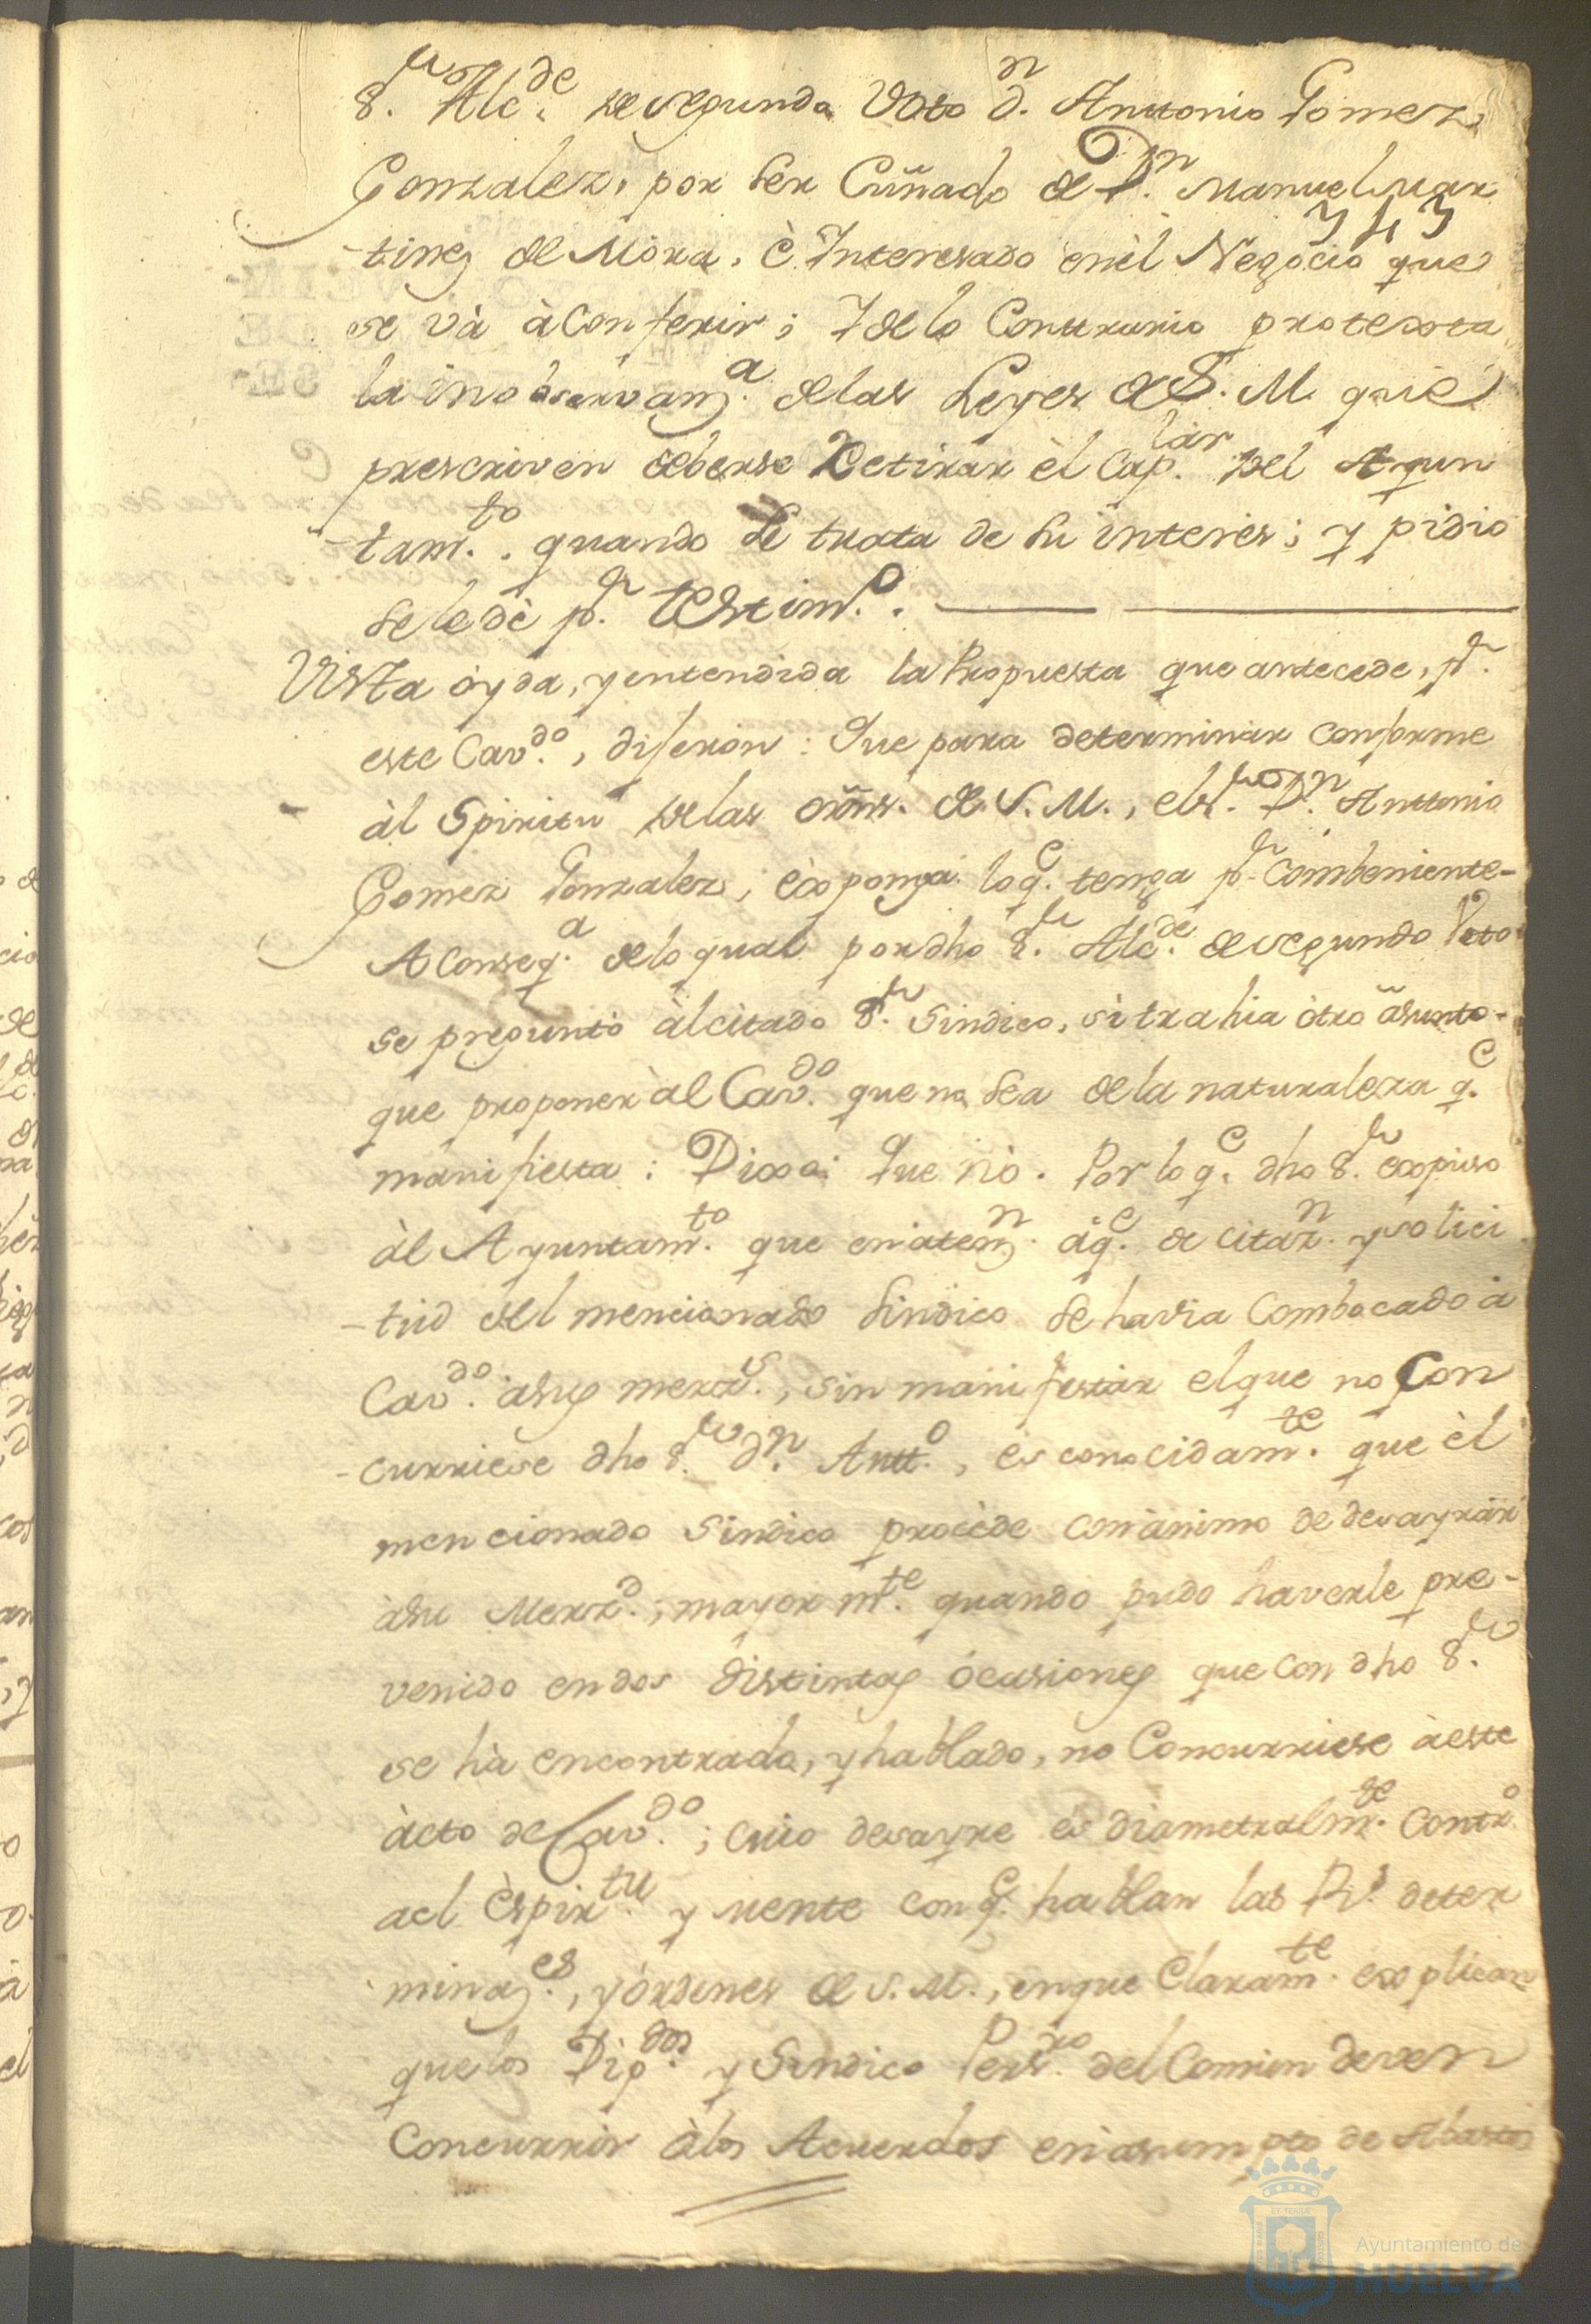 S.ᵒʳ Alc.ᵈᵉ de segundo Voto D.ⁿ Anttonio Gomez
Gonzalez, por ser Cuñado de D.ⁿ Manuel Mar
343
-tinez de Mora, è Interesado en èl Negocio que
se và à Conferir; Y de lo Conttrario protexta
la inobservanz.ᵃ de las Leyes de S. M. que
prescriven deberse Retirar èl Cap.ˡᵃʳ del Ayun
-tam.ᵗᵒ quando se trata de su interès; y pidio
se le dè p.ʳ testim.ᵒ
Vista oyda, y entendida la Propuesta que antecede, p.ʳ
este Cav.ᵈᵒ, dijeron: Que para determinar conforme
àl Spiritu de las orñs. de S. M., el S.ᵒʳ D.ⁿ Anttonio
Gomez Gonzalez, èxponga lo q.ᵉ tenga p.ʳ Combeniente-
A conseq.ᵃ de lo qual por dho S.ʳ Alc.ᵈᵉ de segundo Voto
se preguntò àl citado S.ʳ Sindico, si trahia òtro àsunto-
que proponer àl Cav.ᵈᵒ que no sea de la naturaleza q.ᵉ
manifiesta: Dixo: Que nò. Por lo q.ᵉ dho S.ʳ expuso
àl Ayuntam.ᵗᵒ que en atenz.ⁿ à q.ᵉ de citaz.ⁿ y solici
-tud del mencionado Sindico se havia Combocado à
Cav.ᵈᵒ à sus merz.ˢ, sin manifestar el que no Con
-curriese dho S.ᵒʳ D.ⁿ Antt.ᵒ, ès conocidam.ᵗᵉ que èl
mencionado Sindico procède con ànimo de desayrar
à su Merz.ᵈ, mayorm.ᵗᵉ quando pudo haverle pre-
venido en dos distintas òcasiones que con dho S.ᵒʳ
se hà encontrado, y hablado, no Concurriese à este
àcto de Cav.ᵈᵒ; cuio desayre ès diametralm.ᵗᵉ contr.ᵒ
àel Èspir.ᵗᵘ y mente con q.ᵉ hablan las R.ˢ deter
minaz.ᵉˢ, y òrdenes de S. M., en que Claram.ᵗᵉ explican
que los Dip.ᵈᵒˢ y Sindico Pers.ʳᵒ del Comun deven
Concurrir à los Acuerdos en àsumpto de Abastos
Ayuntamiento de
HUELVA